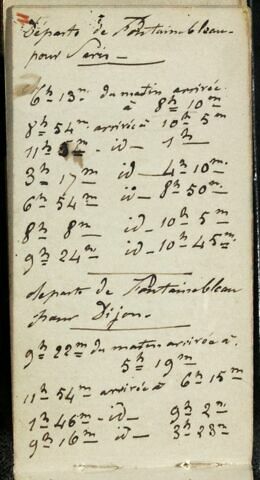 départs de Fontainebleau
pour Paris
6h 13m du matin arrivée
à 8h 10m
8h 54m arrivée à 10h 5m
11h 5m - id - 1h
3h 17m id - 4h 10m
6h 54m id - 8h 50m
8h 8m id - 10h 5m
9h 24m id - 10h 45m
departs de Fontainebleau
pour Dijon
9h 22m du matin arrivée à
5h 19m
11h 54m arrivée à 6h 15m
1h 46m - id - 9h 2m
9h 16m id - 3h 23m